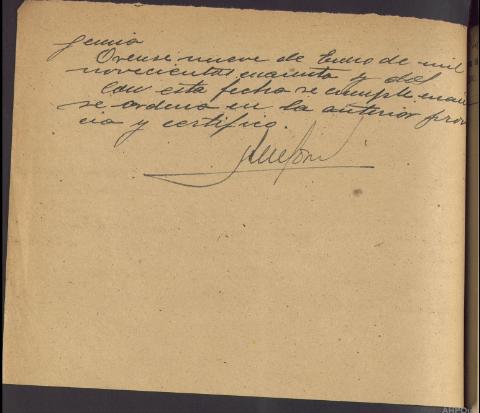 gencia
Orense nueve de Enero de mil
novecientos cuarenta y dos
Con esta fecha se cumple cuan
se ordena en la anterior prov
cia y certifico.
AHPOu